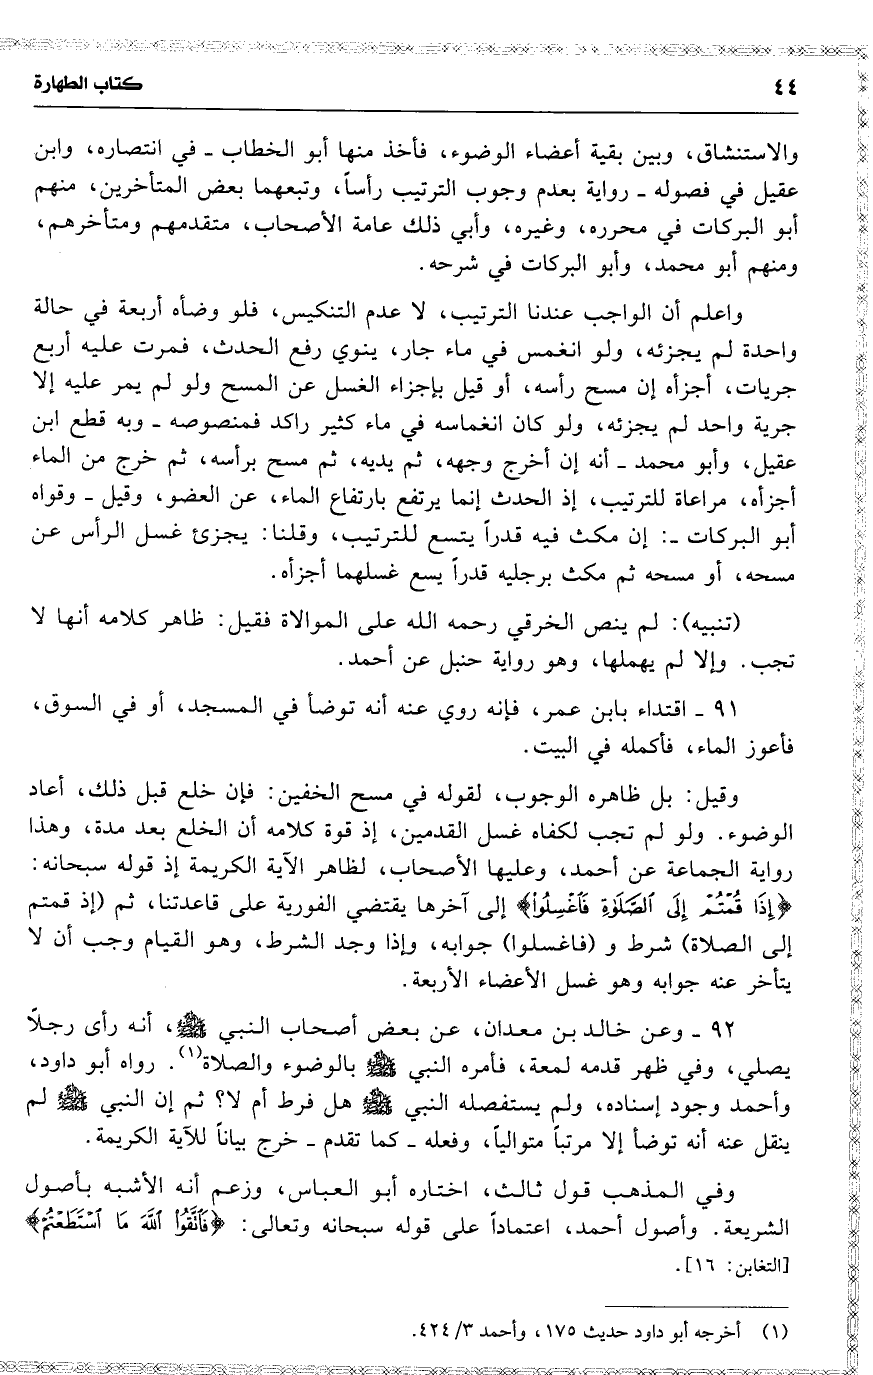 ٤٤ كتاب الطهارة
والاستنشاق، وبين بقية أعضاء الوضوء، فأخذ منها أبو الخطاب ـ في انتصاره، وابن
عقيل في فصوله ـ رواية بعدم وجوب الترتيب رأساً، وتبعهما بعض المتأخرين، منهم
أبو البركات في محرره، وغيره، وأبي ذلك عامة الأصحاب، متقدمهم ومتأخرهم،
ومنهم أبو محمد، وأبو البركات في شرحه.
واعلم أن الواجب عندنا الترتيب، لا عدم التنكيس، فلو وضأه أربعة في حالة
واحدة لم يجزئه، ولو انغمس في ماء جار، ينوي رفع الحدث، فمرت عليه أربع
جريات، أجزأه إن مسح رأسه، أو قيل بإجزاء الغسل عن المسح ولو لم يمر عليه إلا
جرية واحد لم يجزئه، ولو كان انغماسه في ماء كثير راكد فمنصوصه ـ وبه قطع ابن
عقيل، وأبو محمد ـ أنه إن أخرج وجهه، ثم يديه، ثم مسح برأسه، ثم خرج من الماء
أجزأه، مراعاة للترتيب، إذ الحدث إنما يرتفع بارتفاع الماء، عن العضو، وقيل ـ وقواه
أبو البركات ـ: إن مكث فيه قدراً يتسع للترتيب، وقلنا: يجزئ غسل الرأس عن
مسحه، أو مسحه ثم مكث برجليه قدراً يسع غسلهما أجزأه.
(تنبيه): لم ينص الخرقي رحمه الله على الموالاة فقيل: ظاهر كلامه أنها لا
تجب. وإلا لم يهملها، وهو رواية حنبل عن أحمد.
٩١ ـ اقتداء بابن عمر، فإنه روي عنه أنه توضأ في المسجد، أو في السوق،
فأعوز الماء، فأكمله في البيت.
وقيل: بل ظاهره الوجوب، لقوله في مسح الخفين: فإن خلع قبل ذلك، أعاد
الوضوء. ولو لم تجب لكفاه غسل القدمين، إذ قوة كلامه أن الخلع بعد مدة، وهذا
رواية الجماعة عن أحمد، وعليها الأصحاب، لظاهر الآية الكريمة إذ قوله سبحانه:
﴿إِذَا قُمْتُمْ إِلَى ٱلصَّلَوٰةِ فَٱغْسِلُوا۟﴾ إلى آخرها يقتضي الفورية على قاعدتنا، ثم (إذ قمتم
إلى الصلاة) شرط و (فاغسلوا) جوابه، وإذا وجد الشرط، وهو القيام وجب أن لا
يتأخر عنه جوابه وهو غسل الأعضاء الأربعة.
٩٢ ـ وعن خالد بن معدان، عن بعض أصحاب النبي ﷺ، أنه رأى رجلاً
يصلي، وفي ظهر قدمه لمعة، فأمره النبي ﷺ بالوضوء والصلاة(١). رواه أبو داود،
وأحمد وجود إسناده، ولم يستفصله النبي ﷺ هل فرط أم لا؟ ثم إن النبي ﷺ لم
ينقل عنه أنه توضأ إلا مرتباً متوالياً، وفعله ـ كما تقدم ـ خرج بياناً للآية الكريمة.
وفي المذهب قول ثالث، اختاره أبو العباس، وزعم أنه الأشبه بأصول
الشريعة. وأصول أحمد، اعتماداً على قوله سبحانه وتعالى: ﴿فَٱتَّقُوا۟ ٱللَّهَ مَا ٱسْتَطَعْتُمْ﴾
[التغابن: ١٦].
(١) أخرجه أبو داود حديث ١٧٥، وأحمد ٣/ ٤٢٤.